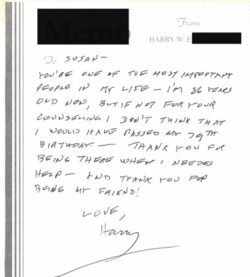 Memo
From
HARRY W. E
To SUSAN—
YOU'RE ONE OF THE MOST IMPORTANT
PEOPLE IN MY LIFE — I'M 86 YEARS
OLD NOW, BUT IF NOT FOR YOUR
COUNSELLING I DON'T THINK THAT
I WOULD HAVE PASSED MY 79th
BIRTHDAY — THANK YOU FOR
BEING THERE WHEN I NEEDED
HELP — AND THANK YOU FOR
BEING MY FRIEND!
LOVE,
Harry